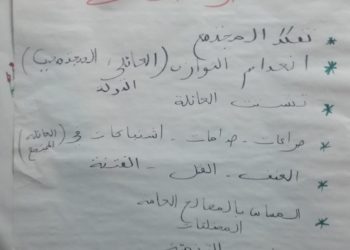 * تفكك المجتمع
* انعدام التوازن (العائلي، المجتمعي)
الدولة
* تشتت العائلة
* صراعات - صدامات - اشتباكات في (العائلة
المجتمع)
* العنف - القتل - الفتنة
* المساس بالمصالح العامة